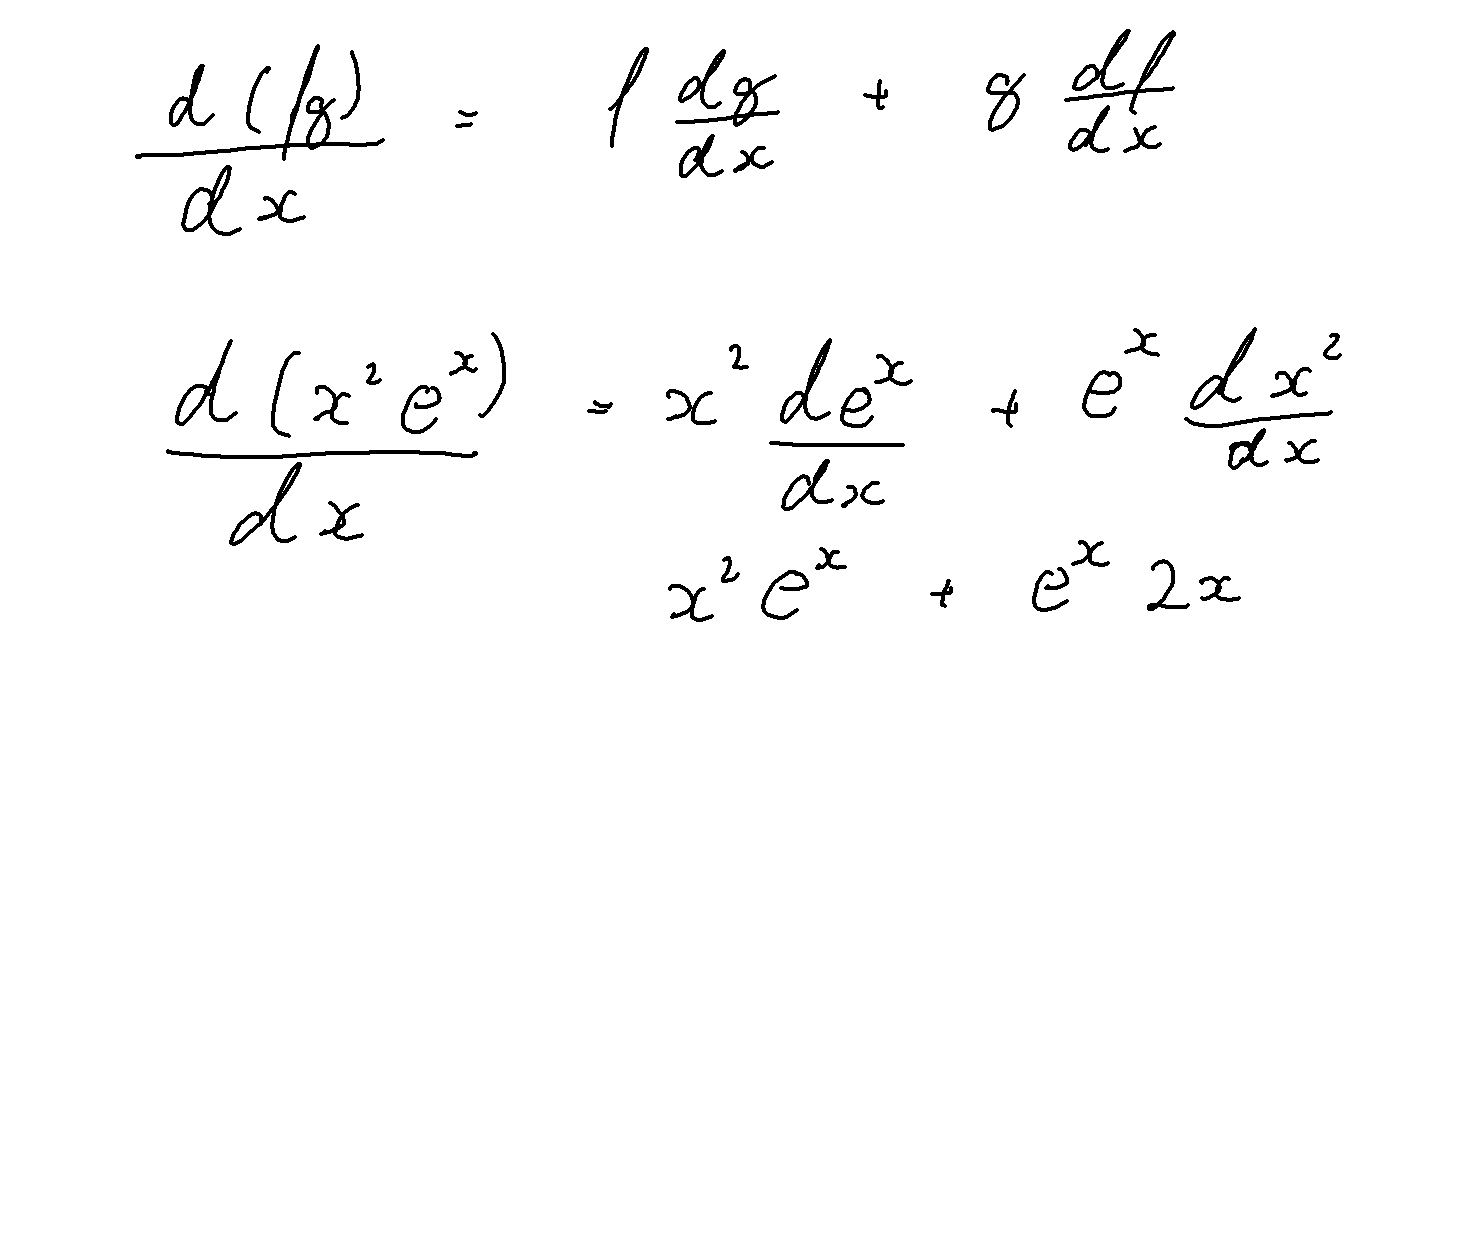 d(fg)/dx = f dg/dx + g df/dx
d(x²eˣ)/dx = x² deˣ/dx + eˣ dx²/dx
x²eˣ + eˣ 2x